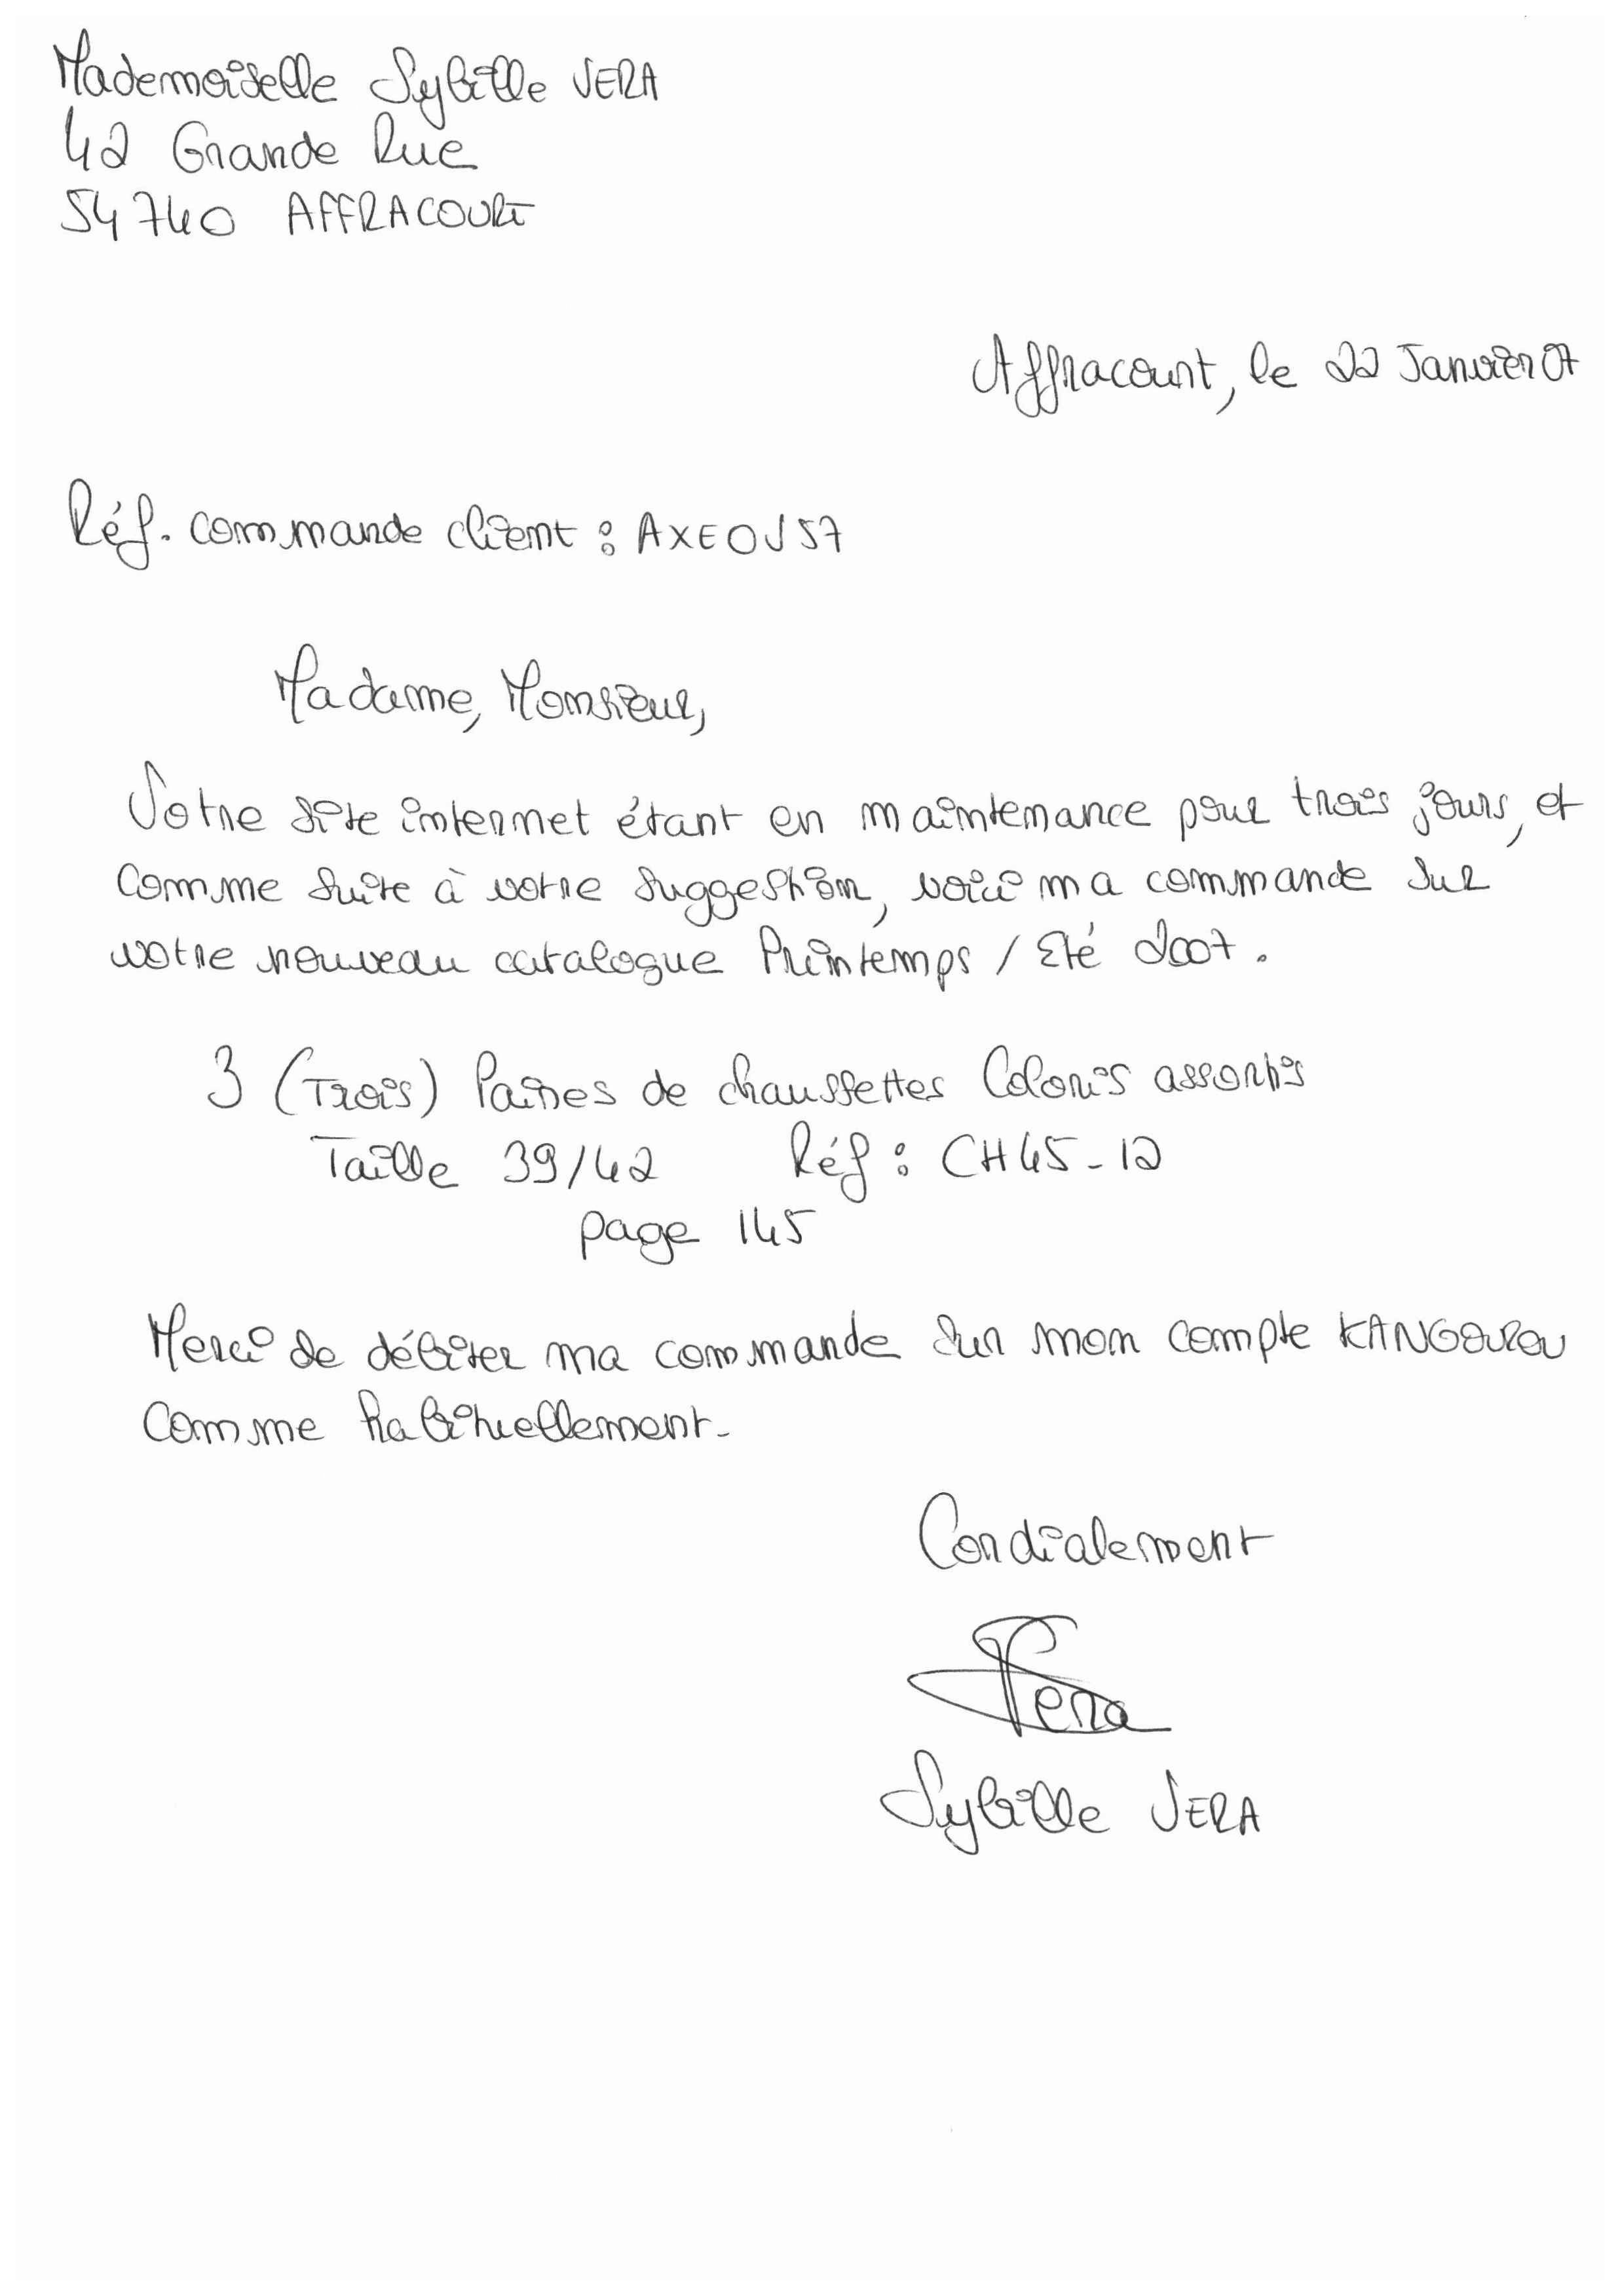 Mademoiselle Sybille VERA
42 Grande Rue
54740 AFFRACOURT
Affracourt, le 22 Janvier 07
Réf. commande client : AXEOV57
Madame, Monsieur,
Votre site internet étant en maintenance pour trois jours, et
comme suite à votre suggestion, voici ma commande sur
votre nouveau catalogue Printemps / Eté 2007.
3 (Trois) Paires de chaussettes Coloris assortis
Taille 39/42 Réf : CH45-12
page 145
Merci de débiter ma commande sur mon compte KANGOUROU
comme habituellement.
Cordialement
Vera
Sybille VERA